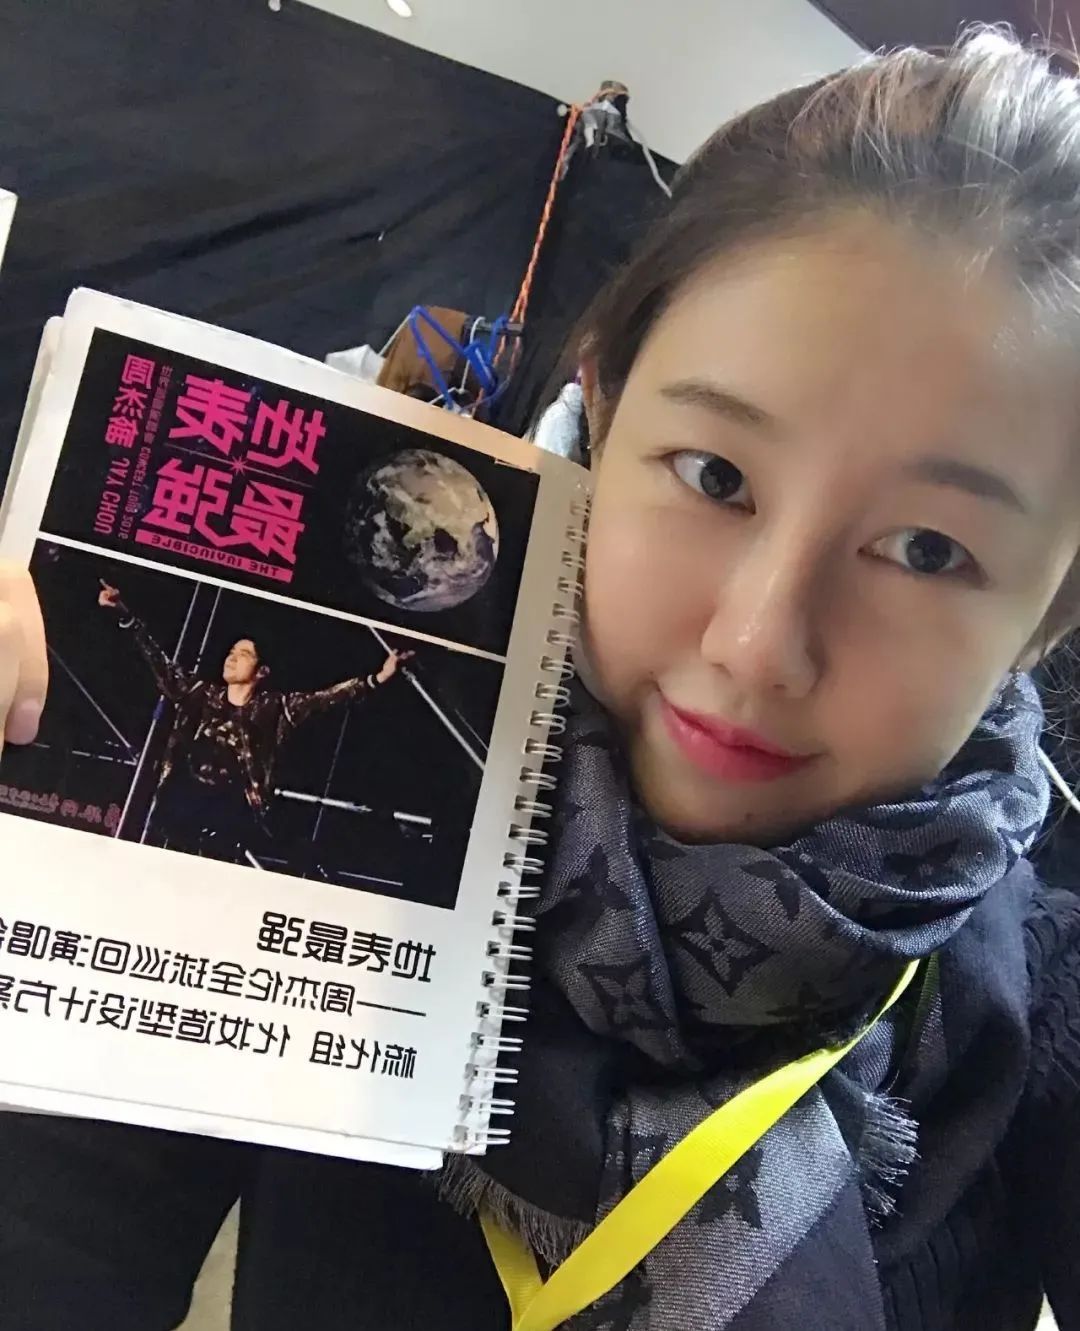 地表
最強
THE INVINCIBLE
周杰倫 JAY CHOU
CONCERT TOUR 2016
地表最强
——周杰伦全球巡回演唱会
梳化组 化妆造型设计方案